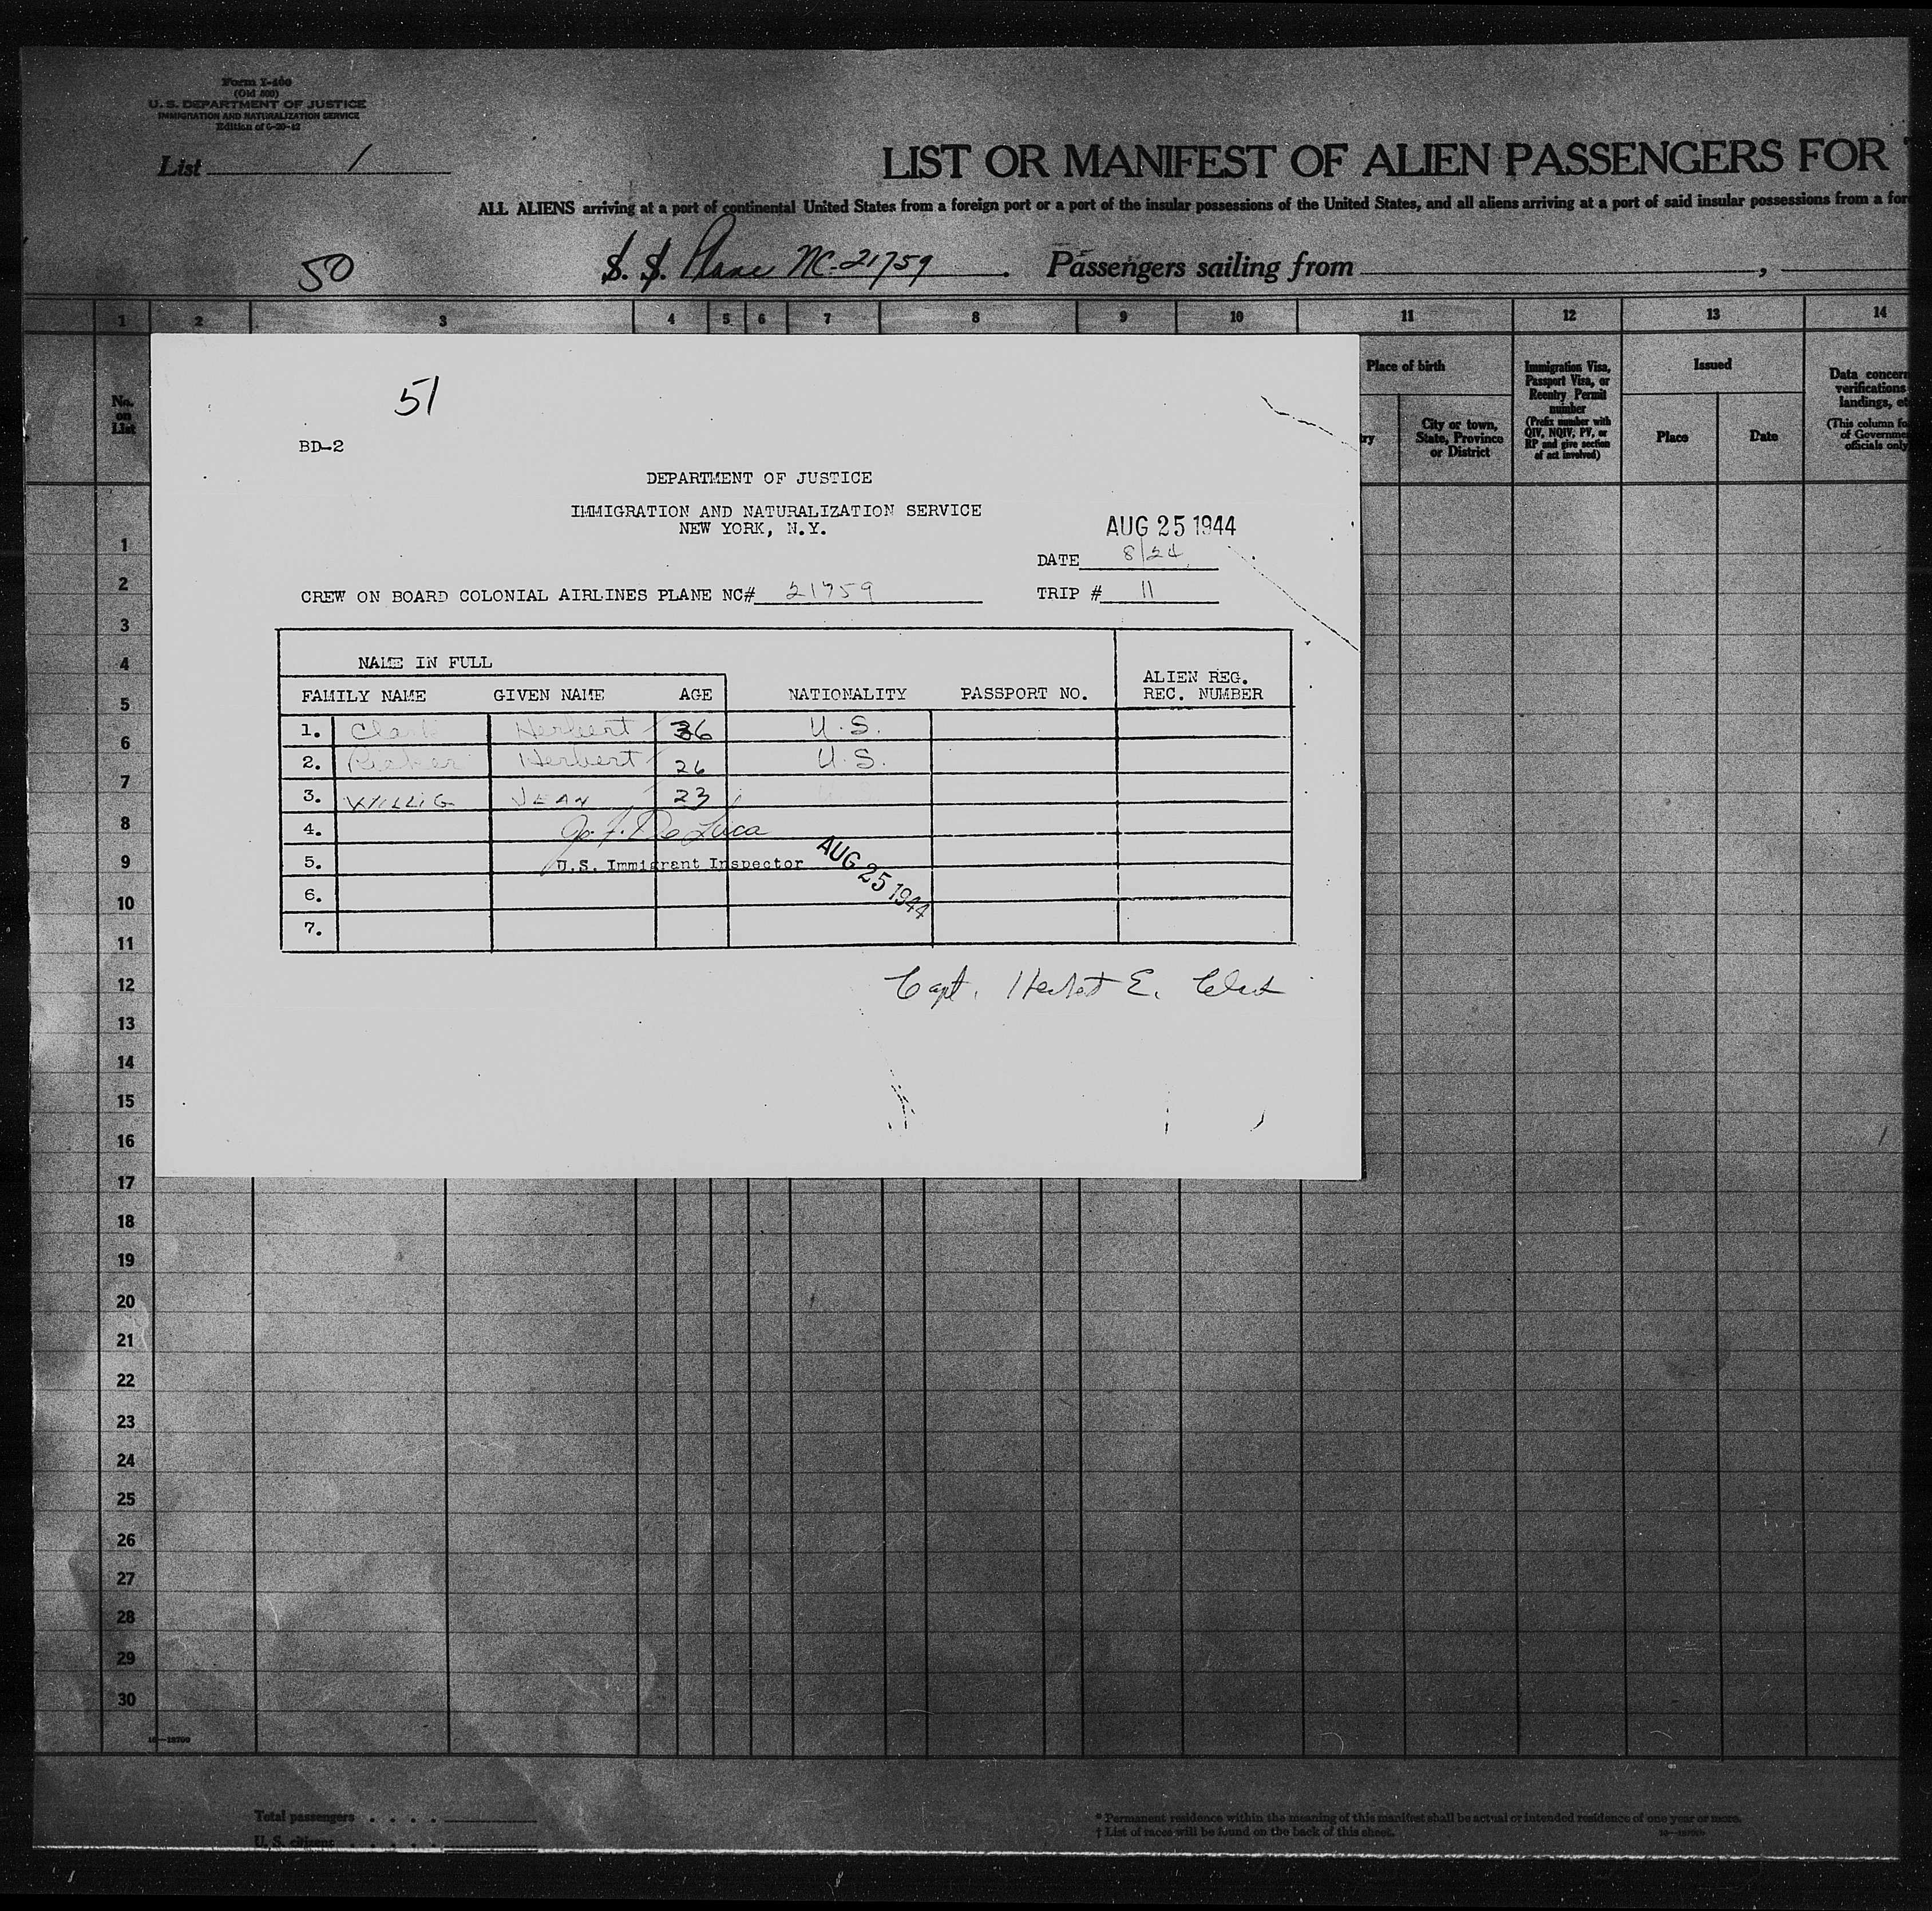 Form I-400
(Old 500)
U. S. DEPARTMENT OF JUSTICE
IMMIGRATION AND NATURALIZATION SERVICE
Edition of 6-20-42
List 1
LIST OR MANIFEST OF ALIEN PASSENGERS FOR
ALL ALIENS arriving at a port of continental United States from a foreign port or a port of the insular possessions of the United States, and all aliens arriving at a port of said insular possessions from a for
50
S. S. Plane NC-21759. Passengers sailing from ,
1 2 3 4 5 6 7 8 9 10 11 12 13 14
No. on List
Place of birth
City or town, State, Province or District
Immigration Visa, Passport Visa, or Reentry Permit number
(Prefix number with QIV, NQIV, PV, or RP and give section of act involved)
Issued
Place
Date
Data concern
verifications
landings, et
(This column fo
of Governme
officials only
51
BD-2
DEPARTMENT OF JUSTICE
IMMIGRATION AND NATURALIZATION SERVICE
NEW YORK, N.Y.
AUG 25 1944
DATE 8/24
CREW ON BOARD COLONIAL AIRLINES PLANE NC# 21759 TRIP # 11
NAME IN FULL
FAMILY NAME GIVEN NAME AGE NATIONALITY PASSPORT NO. ALIEN REG. REC. NUMBER
1. Clark Herbert 36 U.S.
2. Herbert 26 U.S.
3. WILLIG JEAN 23
4. De Luca
5. U.S. Immigrant Inspector
AUG 25 1944
6.
7.
Capt. Herbert E. Clark
1
2
3
4
5
6
7
8
9
10
11
12
13
14
15
16
17
18
19
20
21
22
23
24
25
26
27
28
29
30
16—18700
Total passengers . . . .
U. S. citizens . . . .
* Permanent residence within the meaning of this manifest shall be actual or intended residence of one year or more.
† List of races will be found on the back of this sheet.